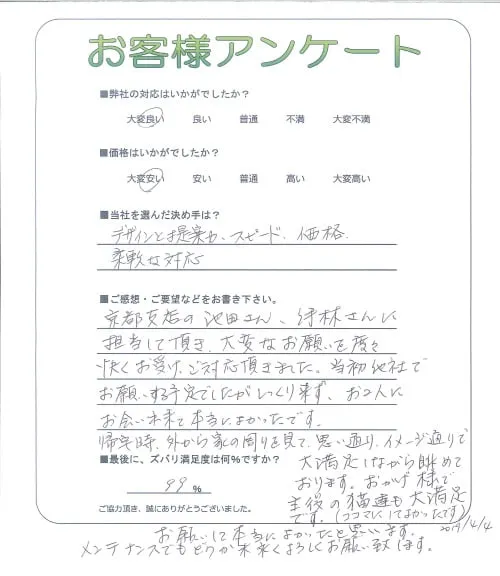 お客様アンケート
■弊社の対応はいかがでしたか?
大変良い 良い 普通 不満 大変不満
■価格はいかがでしたか?
大変安い 安い 普通 高い 大変高い
■当社を選んだ決め手は?
デザインと提案力、スピード、価格、
柔軟な対応
■ご感想・ご要望などをお書き下さい。
京都支店の池田さん、 さんに
担当して頂き、大変なお願いを度々
快くお受け、ご対応頂きました。当初他社で
お願いする予定でしたがしっくり来ず、お2人に
お会い出来て本当によかったです。
帰宅時、外から家の周りを見て、思い通り、イメージ通りで
大満足しながら眺めて
おります。おかげ様で
の猫達も大満足
です。(ココマにしてよかったです)
■最後に、ズバリ満足度は何%ですか?
99 %
ご協力頂き、誠にありがとうございました。
2019/4/4
お願いして本当によかったと思います。
メンテナンスでもどうか末永くよろしくお願い致します。